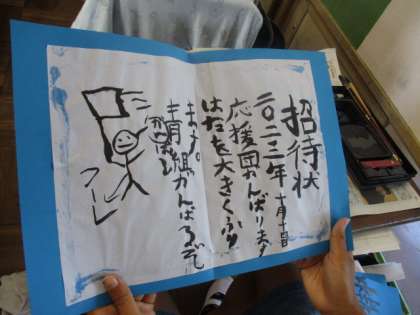 招待状
二〇二三年 十月十日
応援団がんばります
はたを大きくふり
ます。
青組がんばるぞ
フーレ